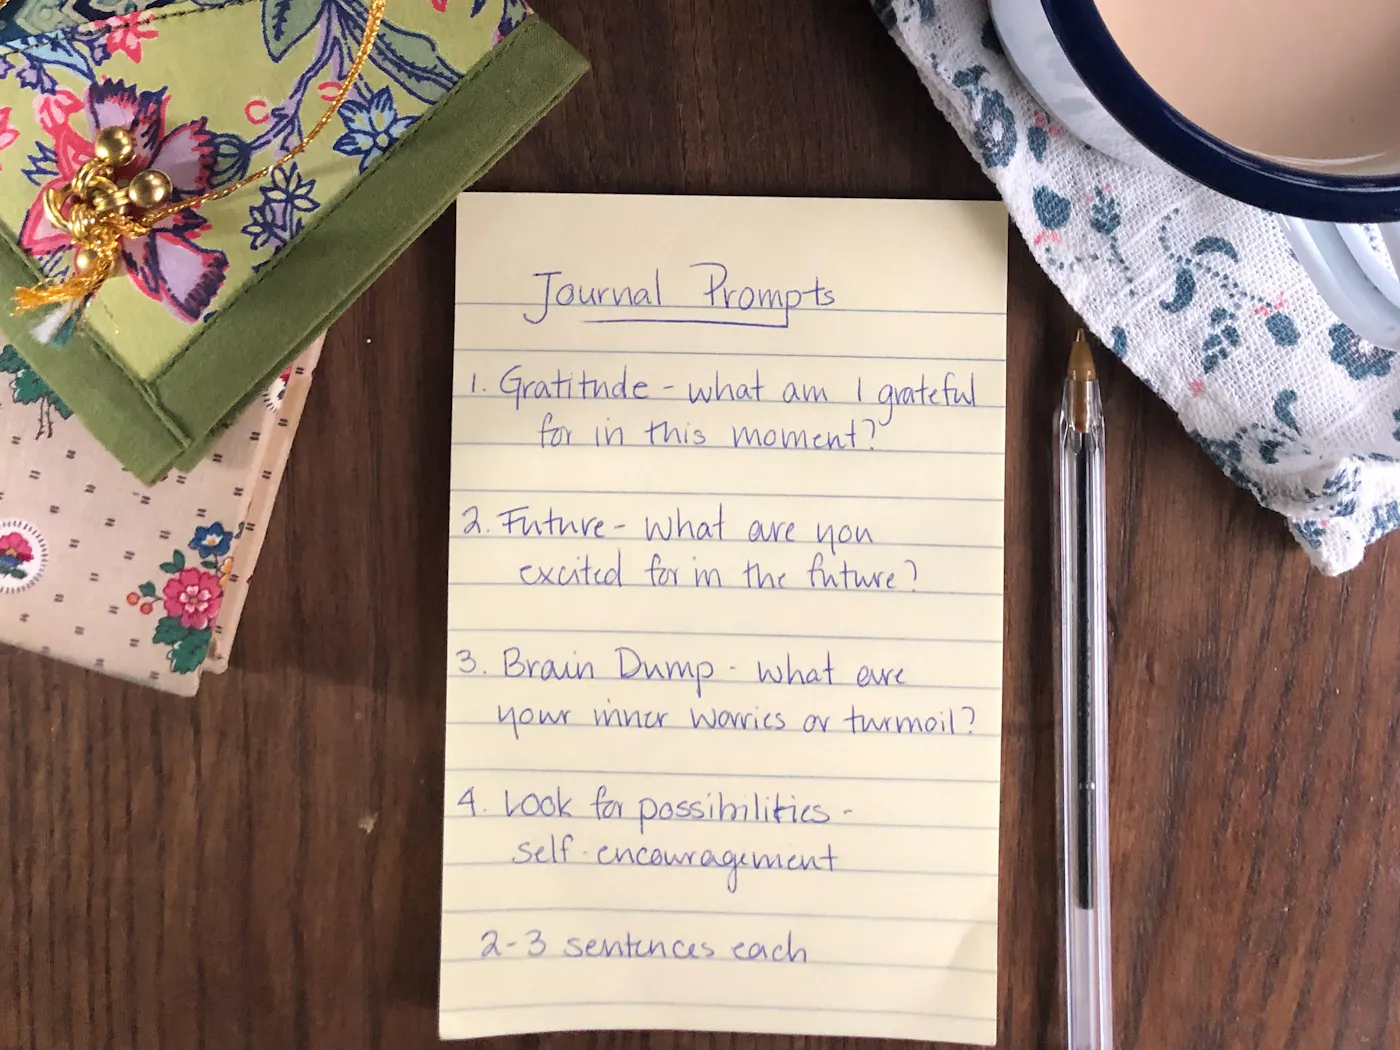 Journal Prompts
1. Gratitude - what am I grateful
for in this moment?
2. Future - What are you
excited for in the future?
3. Brain Dump - what are
your inner worries or turmoil?
4. Look for possibilities -
self-encouragement
2-3 sentences each